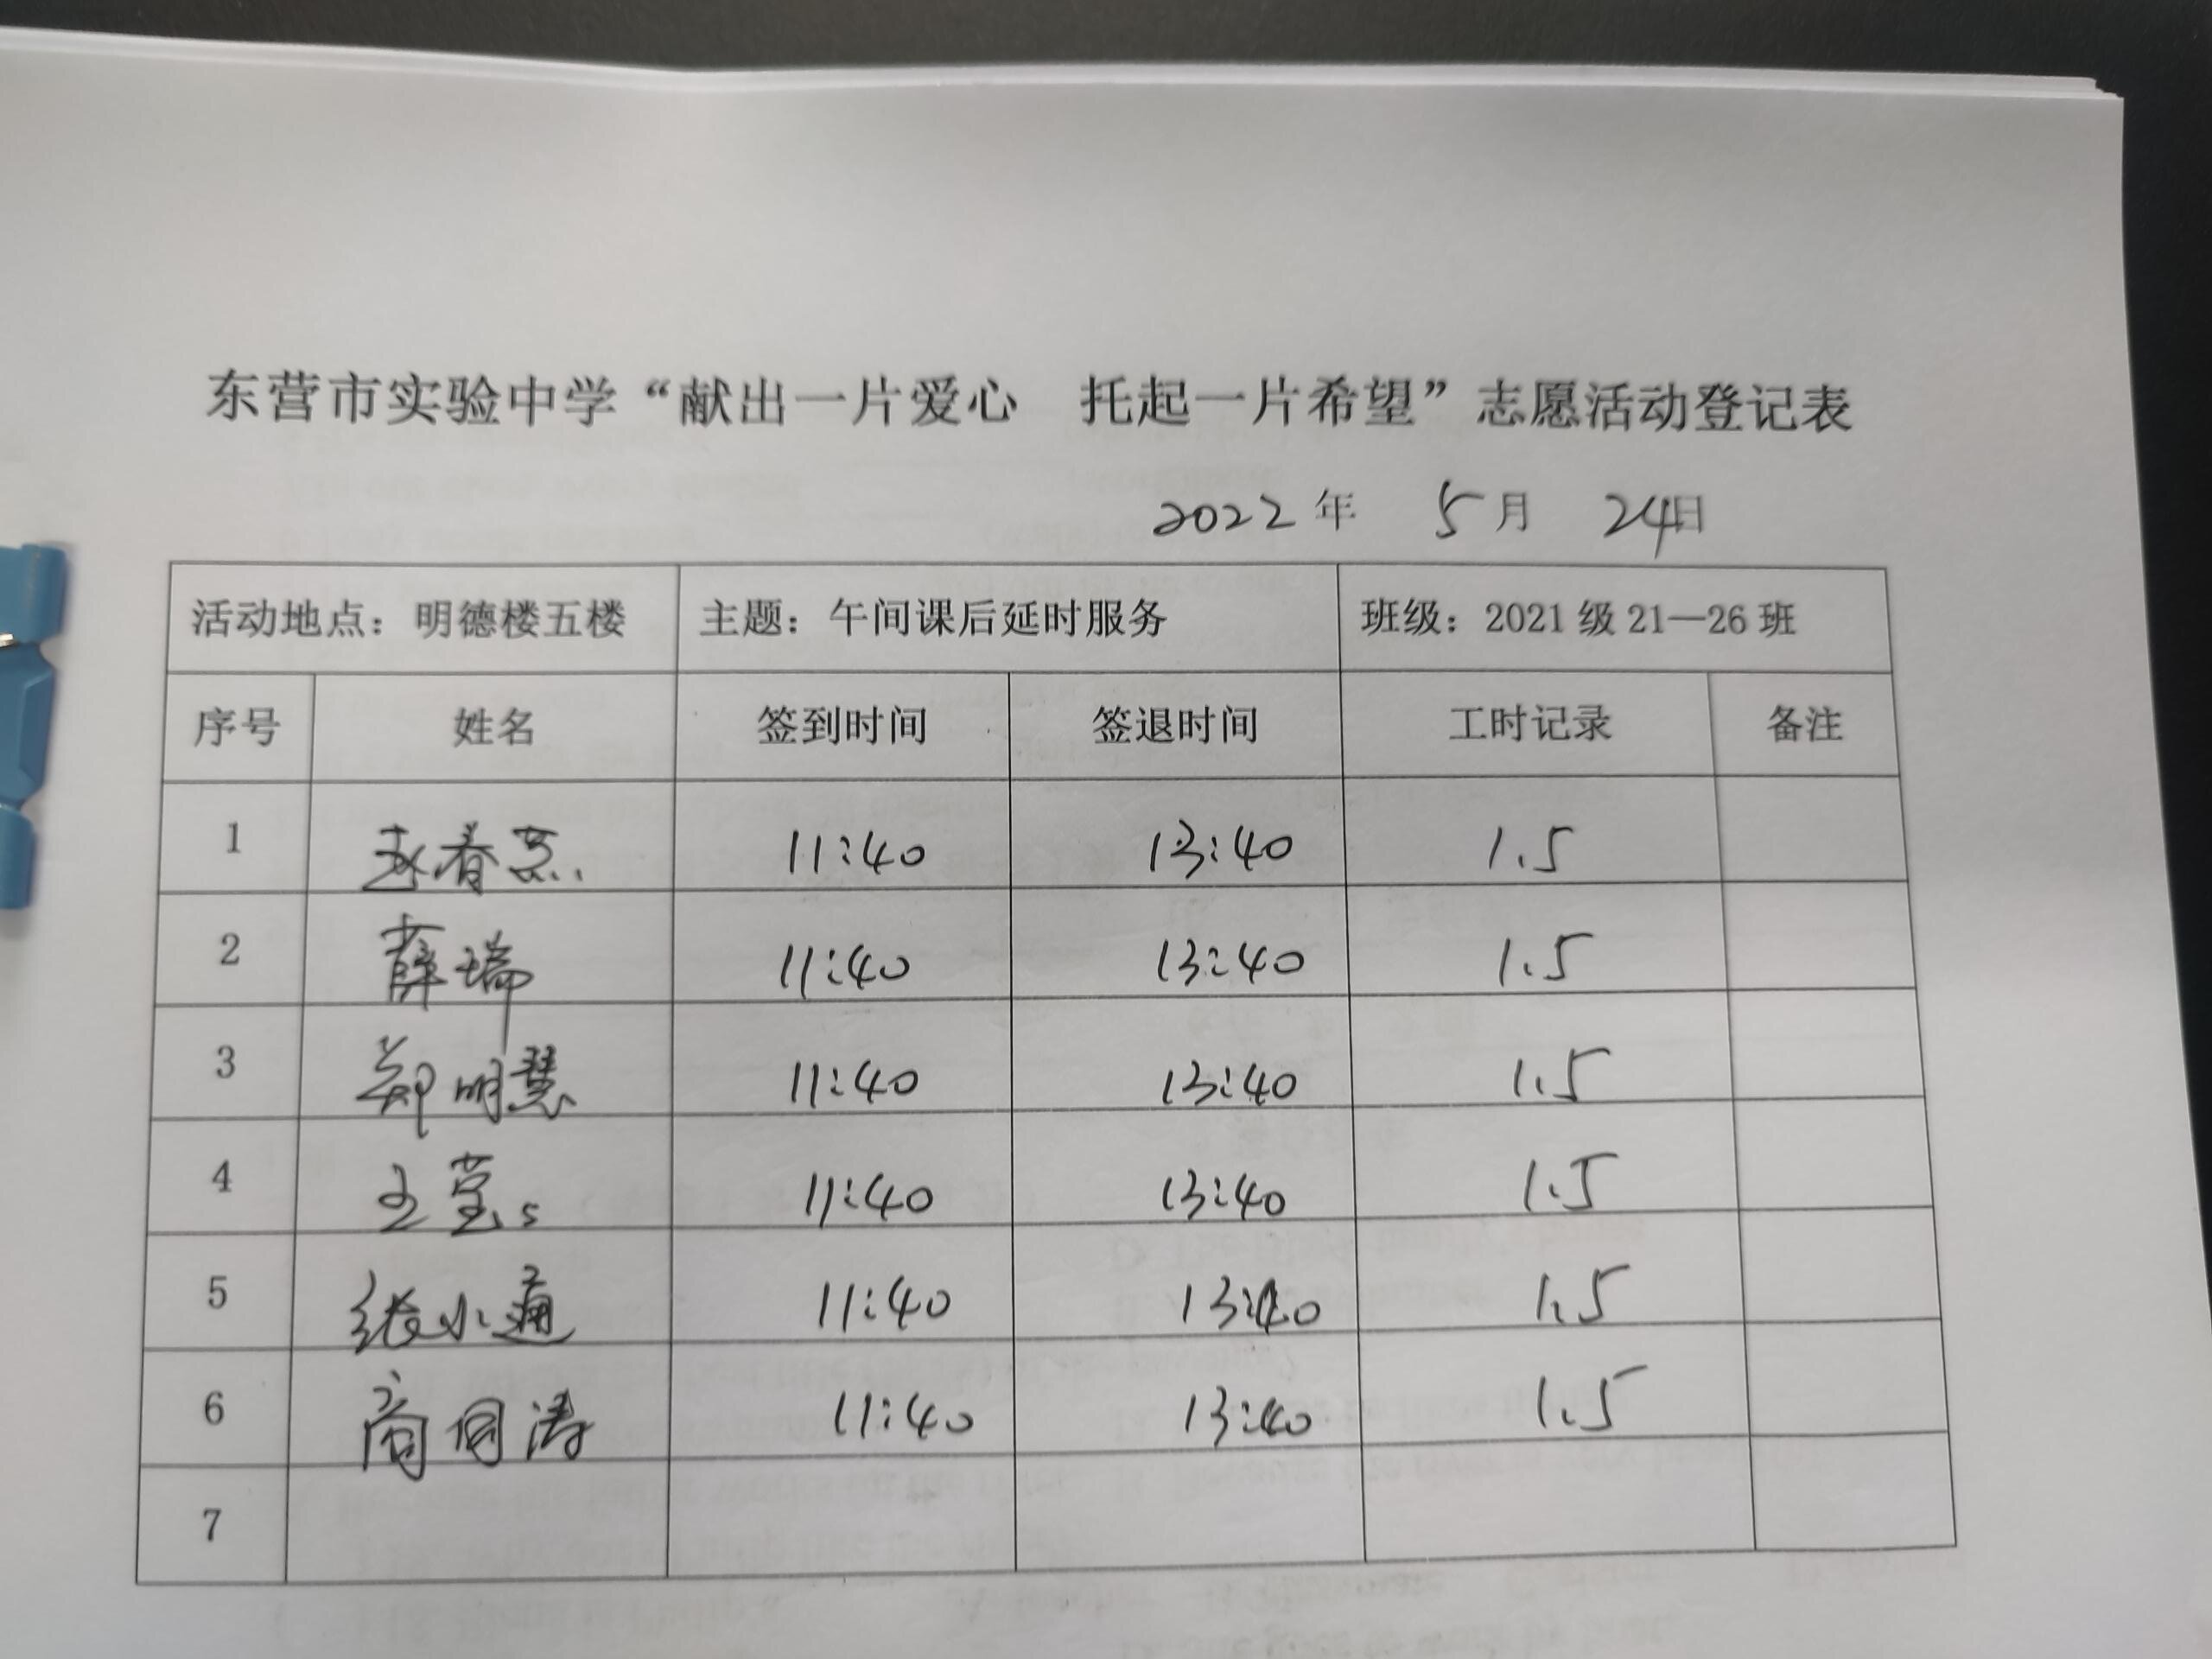 东营市实验中学“献出一片爱心 托起一片希望”志愿活动登记表
2022年 5月 24日
活动地点：明德楼五楼 主题：午间课后延时服务 班级：2021级21—26班
序号 姓名 签到时间 签退时间 工时记录 备注
1 赵春燕 11:40 13:40 1.5
2 薛瑞 11:40 13:40 1.5
3 郑明慧 11:40 13:40 1.5
4 王莹 11:40 13:40 1.5
5 张小通 11:40 13:40 1.5
6 商同涛 11:40 13:40 1.5
7